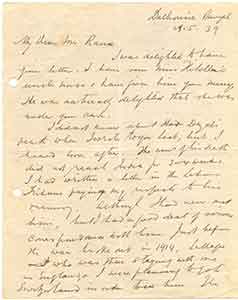 Dalhousie Punjab
29.5.39
My Dear Mr Rama
I was delighted to have
your letter. I have seen miss
uncle since & have given her your message
He was naturally delighted that she was
made you can.
I did not know about Har Dayal's
death when I wrote to you last, but I
heard soon after. The news of his death
did not reach India for some weeks.
I had written a letter in the Lahore
Tribune paying my respects to his
memory. Although I had never met
him, I had a good deal of
correspondence with him just before
the war broke out in 1914.
and who was then staying with me
in England & I were planning to go to
Switzerland in order to see him. The